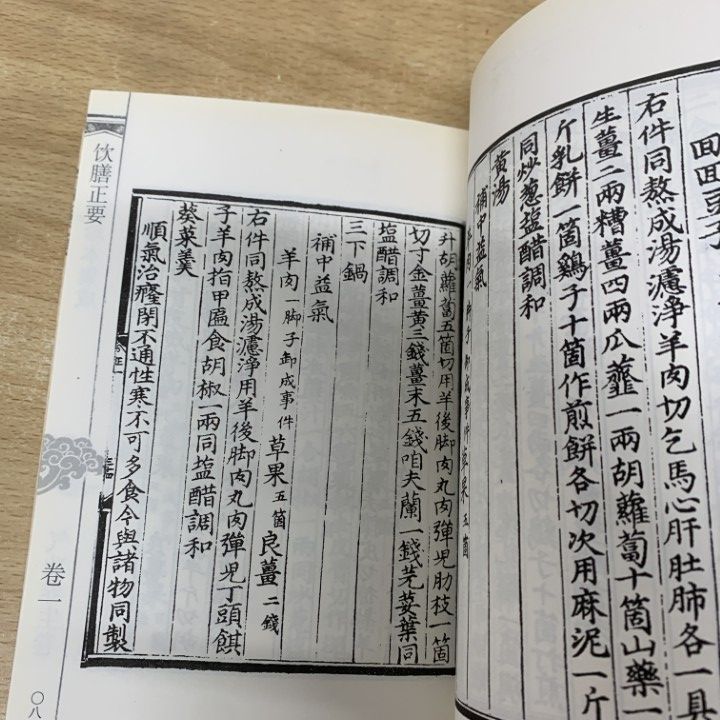 囬囬豆子
右件同熬成湯濾淨羊肉切乞馬心肝肚肺各一具
生薑二兩糟薑四兩瓜虀一兩胡蘿蔔十箇山藥一
斤乳餅一箇鷄子十箇作煎餅各切次用麻泥一斤
同炒葱塩醋調和
黄湯
補中益氣
羊肉一脚子卸成事件草果五箇
升胡蘿蔔五箇切用羊後脚肉丸肉彈児肋枝一箇
切寸金薑黄三錢薑末五錢咱夫蘭一錢芫荽葉同
塩醋調和
三下鍋
補中益氣
羊肉一脚子卸成事件草果五箇良薑二錢
右件同熬成湯濾淨用羊後脚肉丸肉彈児丁頭
子羊肉指甲匾食胡椒一兩同塩醋調和
葵菜羹
順氣治癃閉不通性寒不可多食今與諸物同製
饮膳正要
卷一
〇八